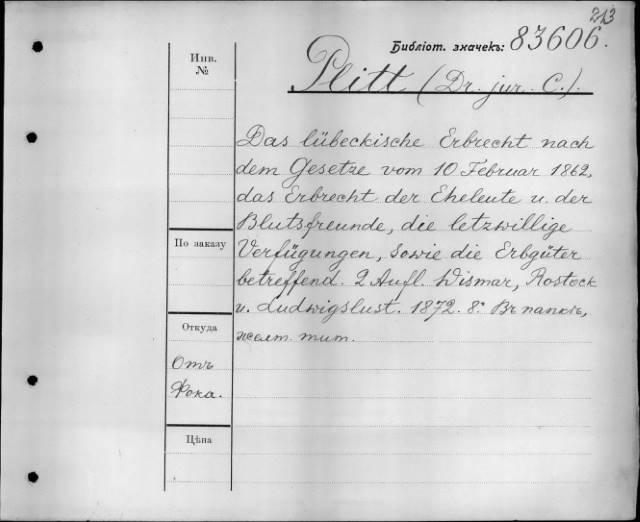 213
Библіот. значекъ: 83606.
Инв.
№
Plitt (Dr. jur. C.).
Das lübeckische Erbrecht nach
dem Gesetze vom 10 Februar 1862,
das Erbrecht der Eheleute u. der
Blutsfreunde, die letzwillige
По заказу
Verfügungen, sowie die Erbgüter
betreffend. 2 Aufl. Wismar, Rostock
u. Ludwigslust. 1872. 8° Въ папкѣ,
Откуда
желт. тит.
Отъ
Фока.
Цѣна